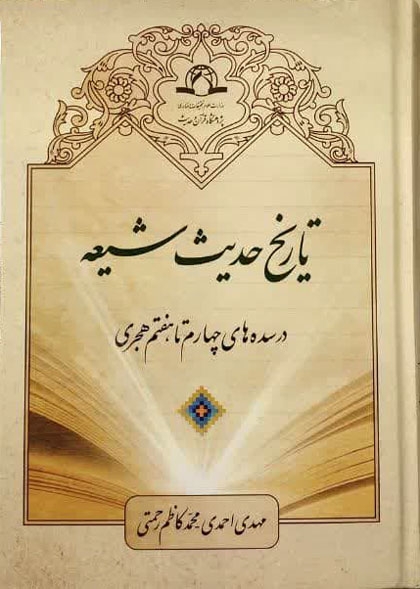 وزارت علوم، تحقیقات و فناوری
پژوهشگاه قرآن و حدیث
تاریخ حدیث شیعه
در سده های چهارم تا هفتم هجری
مهدی احمدی، محمد کاظم رحمتی